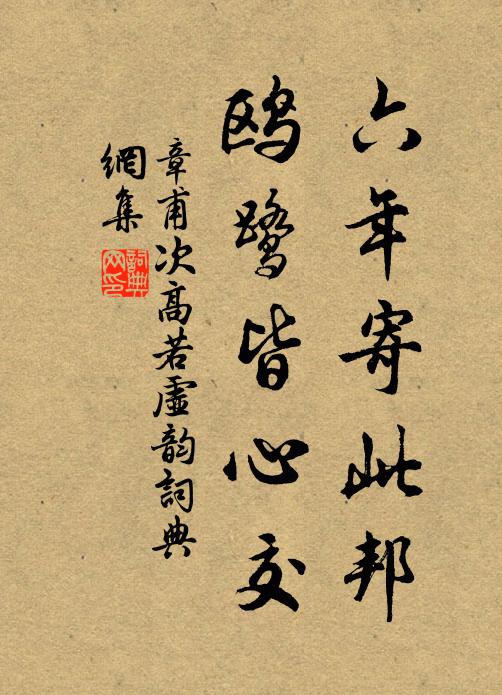 六年寄此邦
鸥鹭皆心交
章甫次高若虛韵詞典
網集
詞典
网印